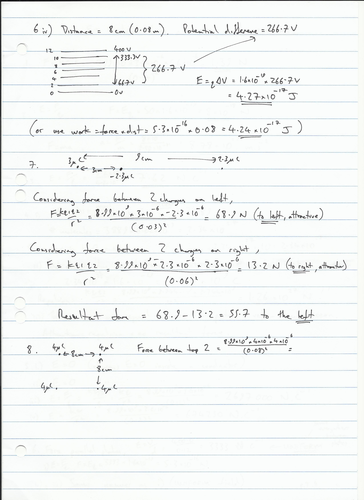 6 iv) Distance = 8cm (0.08m). Potential difference = 266.7V
12 400V
10 333.3V
8
6 266.7 V
4
2 66.7V
0 0V
E = qΔV = 1.6x10⁻¹⁹ x 266.7V
= 4.27x10⁻¹⁷ J
(or use work = force x dist = 5.3x10⁻¹⁶ x 0.08 = 4.24x10⁻¹⁷ J)
7. 3μC 9cm 2.3μC
3cm
-2.3μC
Considering force between 2 charges on left,
F = kq₁q₂ / r² = 8.99x10⁹ x 3x10⁻⁶ x -2.3x10⁻⁶ / (0.03)² = 68.9 N (to left, attractive)
Considering force between 2 charges on right,
F = kq₁q₂ / r² = 8.99x10⁹ x 2.3x10⁻⁶ x 2.3x10⁻⁶ / (0.06)² = 13.2 N (to right, attractive)
Resultant = 68.9 - 13.2 = 55.7 to the left
8. 4μC 8cm 4μC
Force between top 2 = 8.99x10⁹ x 4x10⁻⁶ x 4x10⁻⁶ / (0.08)² =
8cm
4μC 4μC